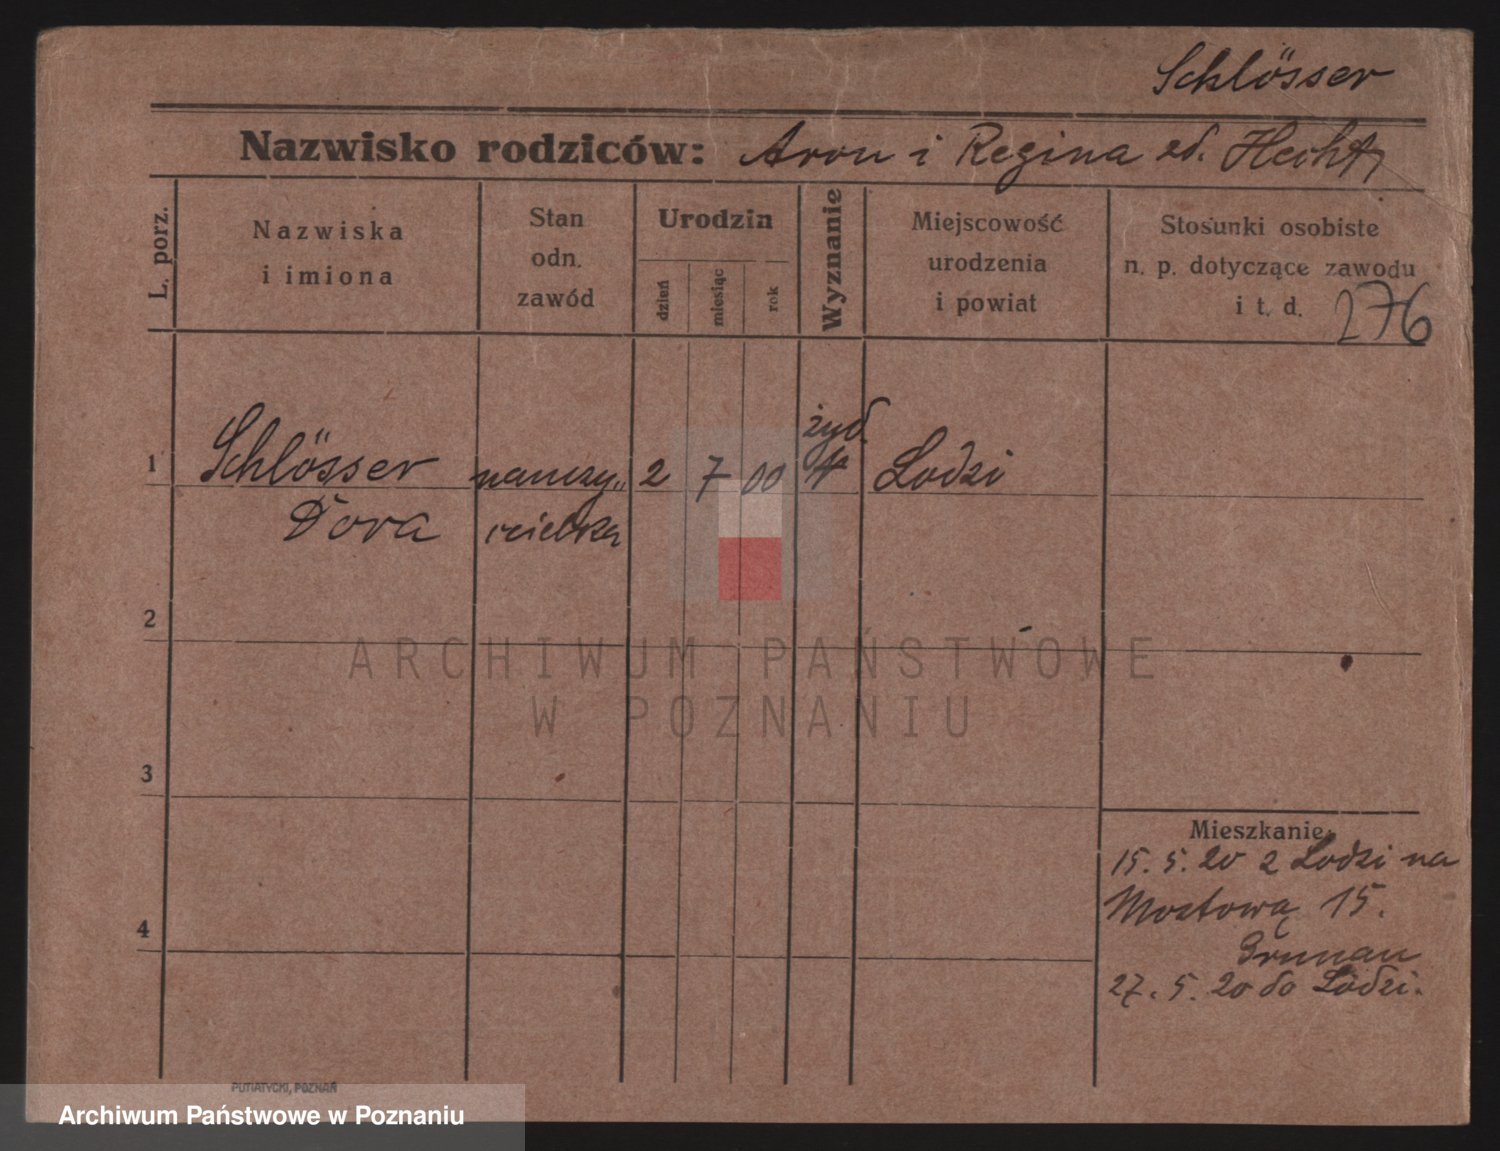 Schlösser
Nazwisko rodziców: Aron i Regina zd. Hecht
L. porz.
Nazwiska
i imiona
Stan
odn.
zawód
Urodzin
dzień
miesiąc
rok
Wyznanie
Miejscowość
urodzenia
i powiat
Stosunki osobiste
n. p. dotyczące zawodu
i t. d.
276
1
Schlösser
Dora
nauczy„
cielka
2
7
00
żyd.
Lodzi
2
3
4
Mieszkanie:
15. 5. 20 z Lodzi na
Mostową 15.
Grunau
27. 5. 20 do Lodzi.
ARCHIWUM PAŃSTWOWE
W POZNANIU
PUTIATYCKI, POZNAŃ
Archiwum Państwowe w Poznaniu